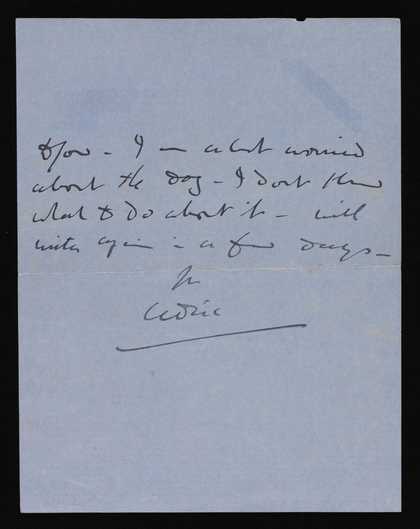 to you – I am a bit worried
about the dog – I dont know
what to do about it – will
write again in a few days –
Cedric